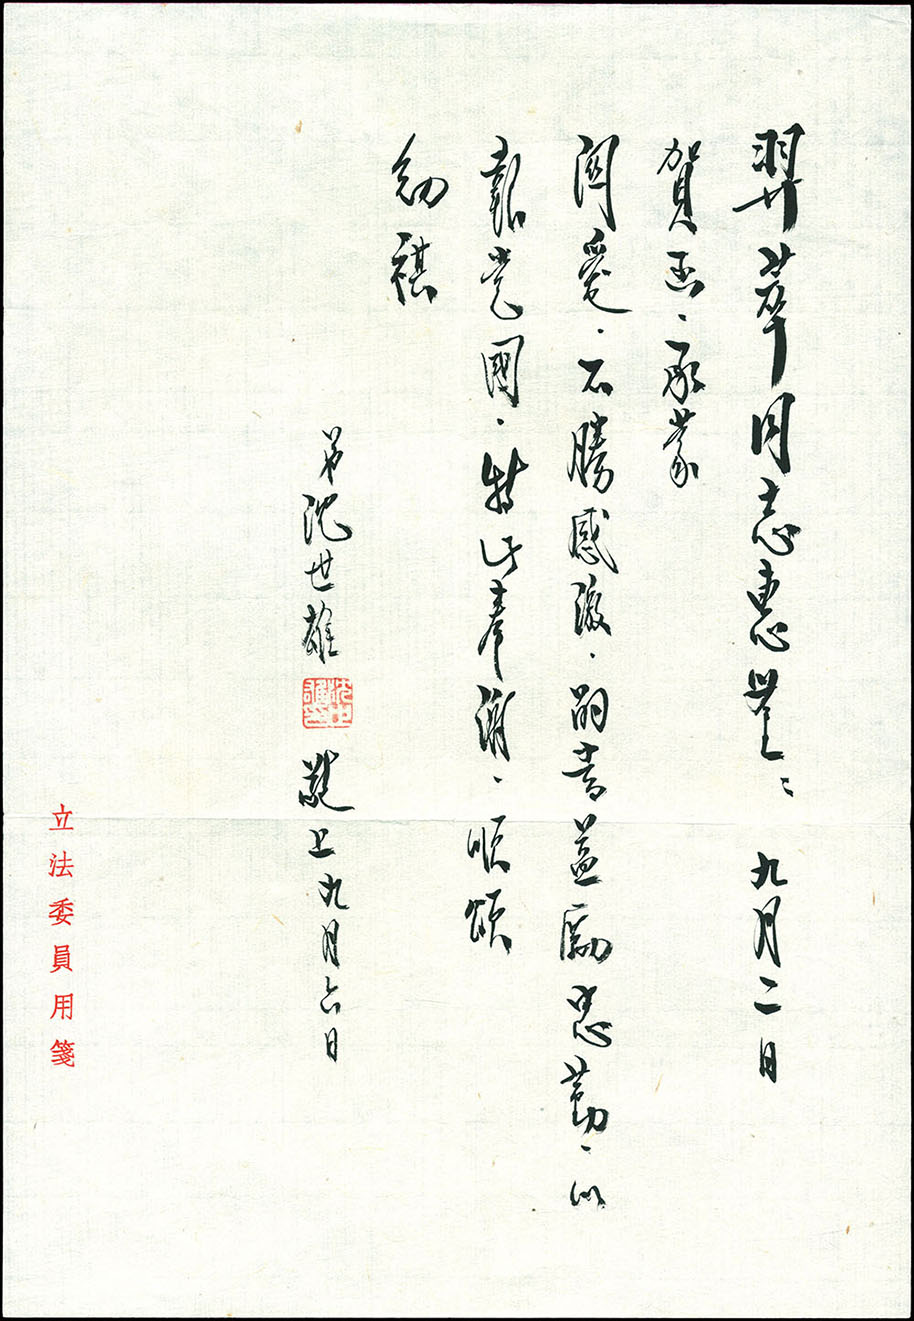 羿萃同志惠鑒:九月二日
賀函、承蒙
關愛、不勝感激、嗣當益勵忠勤、以
報黨國、特此奉謝、順頌
勛祺
弟沈世雄 敬上九月六日
沈世雄印
立法委員用箋